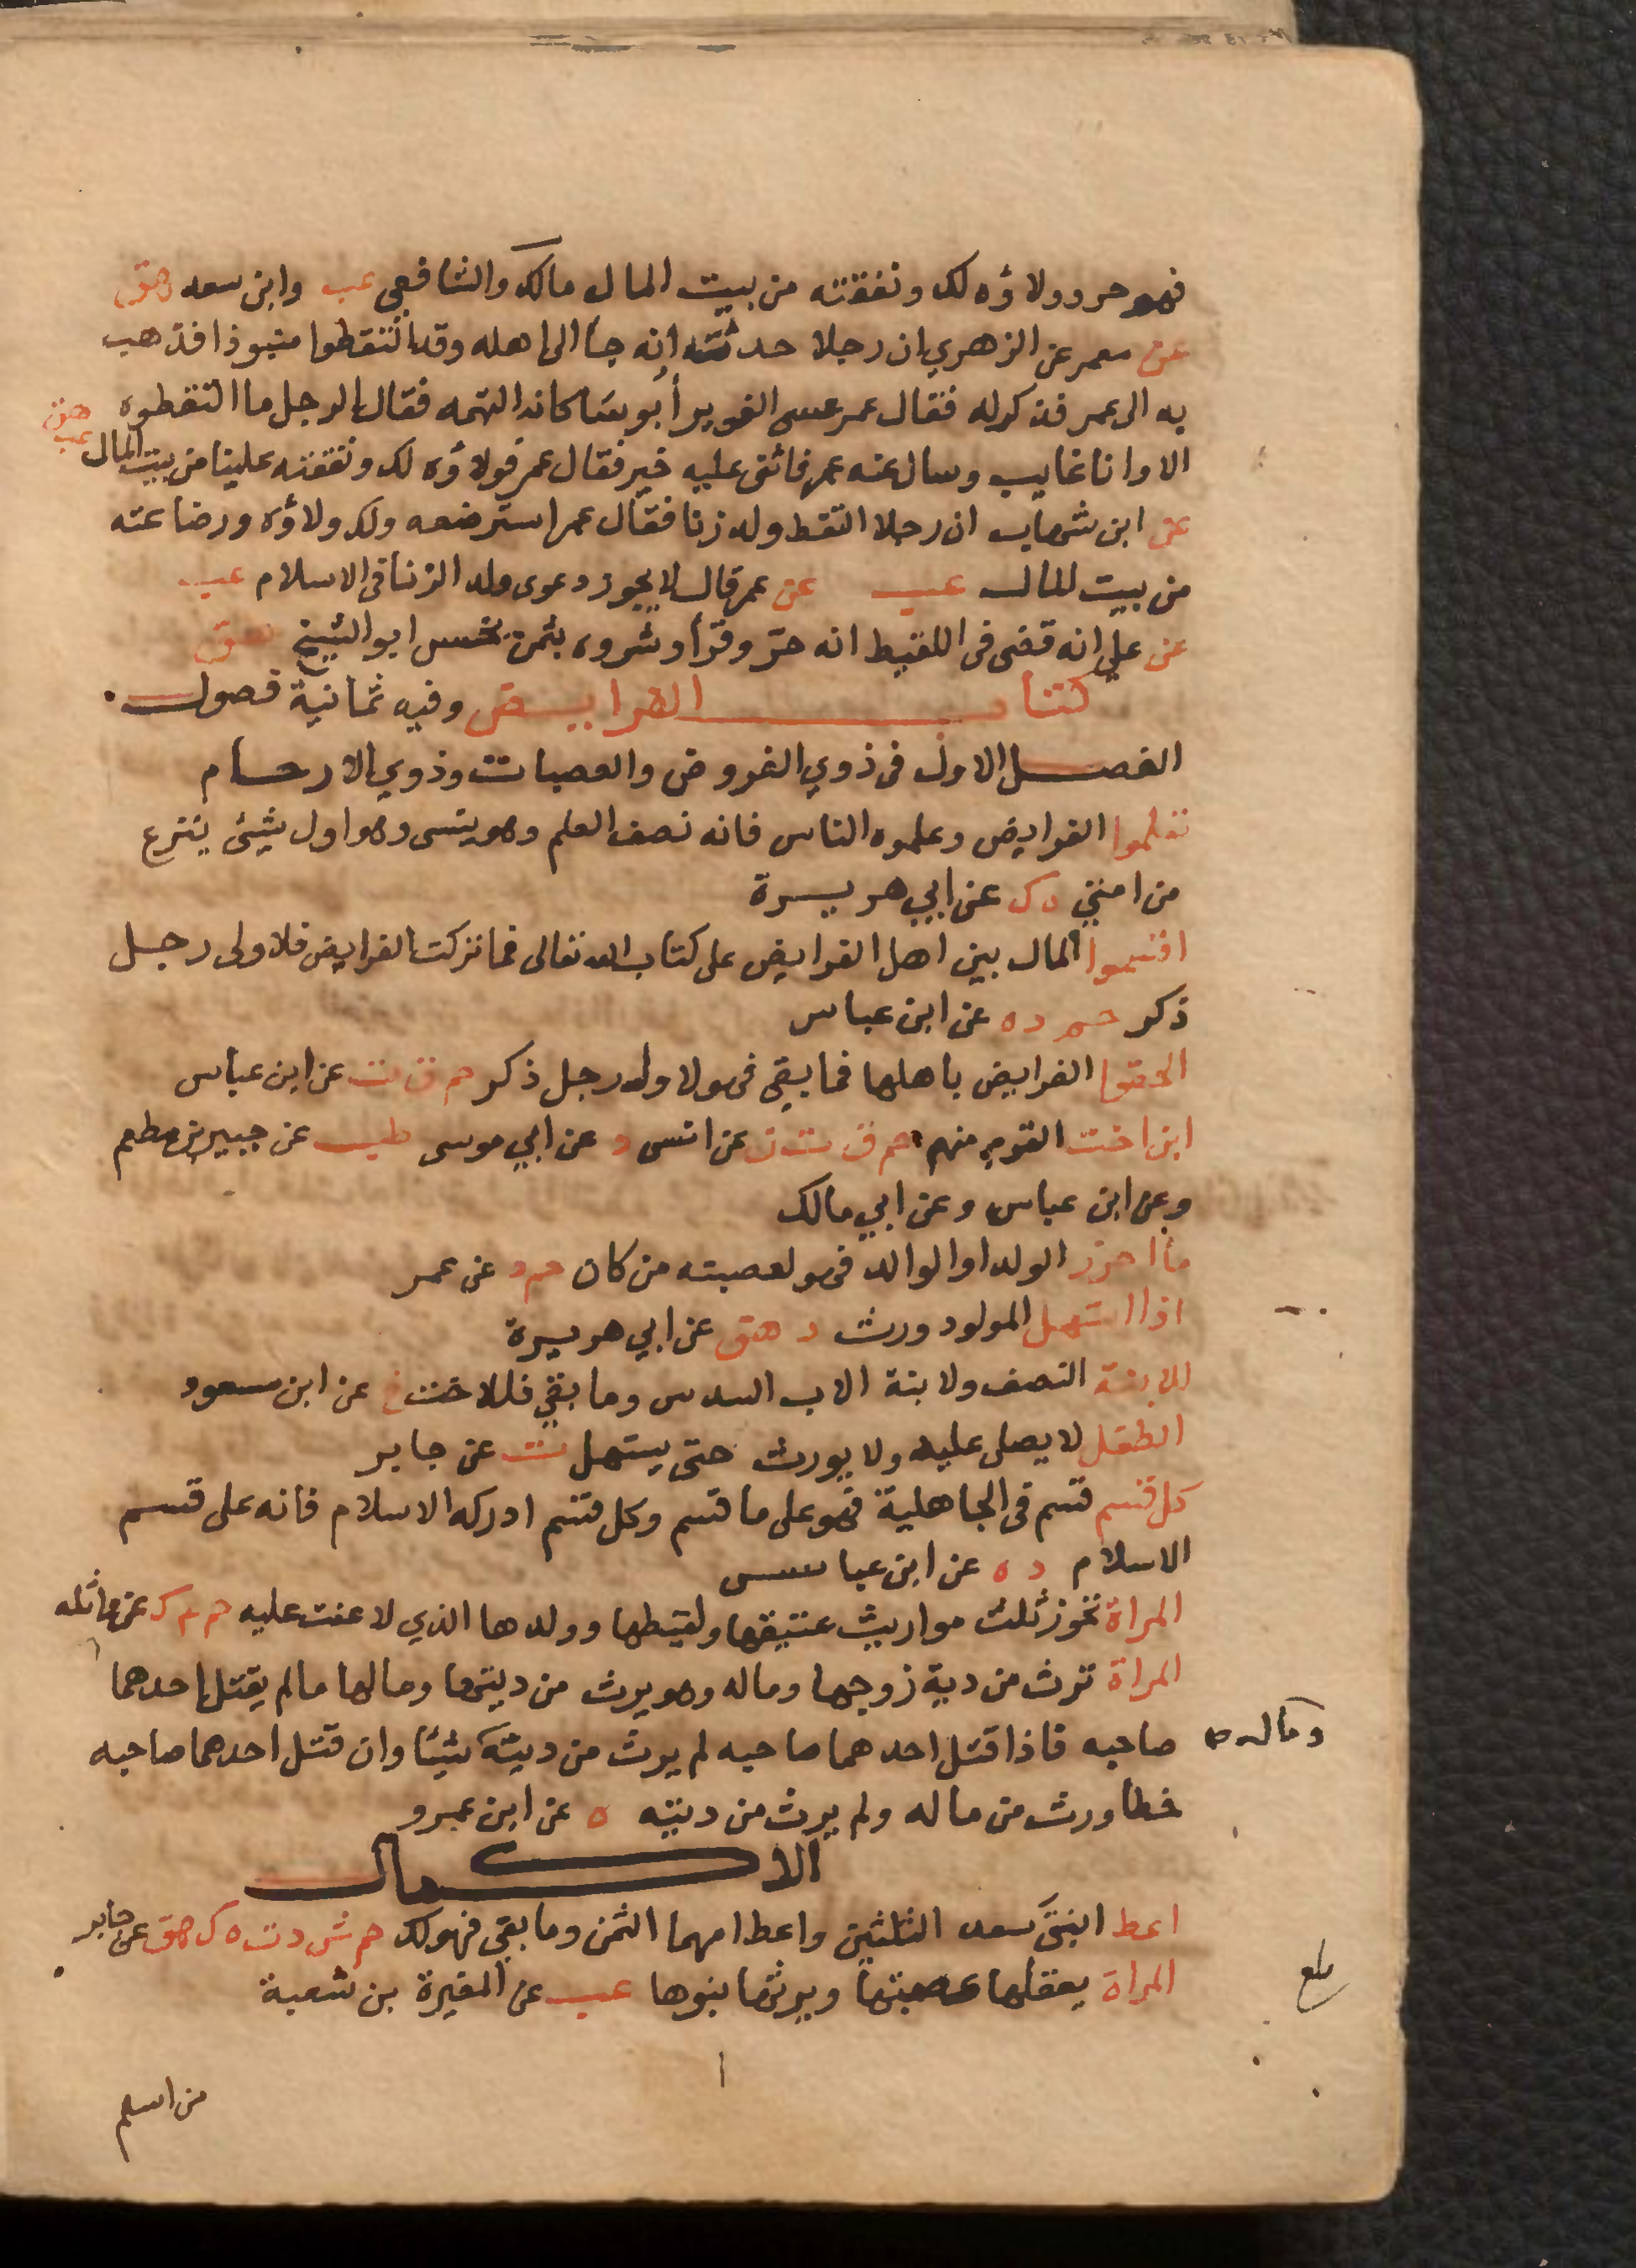 فهو حر وولاؤه لك ونفقته من بيت المال مالك والشافعي عب وابن سعد هق
عن معمر عن الزهري ان رجلا حدثه انه جا الى اهله وقد التقطوا منبوذا فذهب
به الى عمر فذكر له فقال عمر عسى الغوير أبوسا كانه اتهمه فقال الرجل ما التقطوه
الا وانا غايب وسال عنه عمر فاثنى عليه خير فقال عمر فولاؤه لك ونفقته علينا من بيت المال عب هق
عن ابن شهاب ان رجلا التقط ولد زنا فقال عمر استرضعه ولك ولاؤه ورضاعته
من بيت المال عب عن عمر قال لا يجوز دعوى ولد الزنا في الاسلام عب
عن علي انه قضى في اللقيط انه حر وقرأ وشروه بثمن بخس ابو الشيخ هق
كتاب الفرايض وفيه ثمانية فصول
الفصل الاول في ذوي الفروض والعصبات وذوي الارحام
تعلموا الفرايض وعلموه الناس فانه نصف العلم وهو ينسى وهو اول شيئ ينزع
من امتي ه ك عن ابي هريرة
اقسموا المال بين اهل الفرايض على كتاب الله تعالى فما تركت الفرايض فلاولى رجل
ذكر حم د ه عن ابن عباس
الحقوا الفرايض باهلها فما بقي فهو لاولى رجل ذكر حم ق ت عن ابن عباس
ابن اخت القوم منهم حم ق ت ن عن انس د عن ابي موسى طب عن جبير بن مطعم
وعن ابن عباس وعن ابي مالك
ما احرز الولد او الوالد فهو لعصبته من كان حم د عن عمر
اذا استهل المولود ورث د هق عن ابي هريرة
للابنة النصف ولابنة الابن السدس وما بقي فللاخت خ عن ابن مسعود
الطفل لا يصلى عليه ولا يورث حتى يستهل ت عن جابر
كل قسم قسم في الجاهلية فهو على ما قسم وكل قسم ادركه الاسلام فانه على قسم
الاسلام د ه عن ابن عباس
المراة تحوز ثلث مواريث عتيقها ولقيطها وولدها الذي لاعنت عليه حم ك عن واثله
المراة ترث من دية زوجها وماله وهو يرث من ديتها ومالها ما لم يقتل احدهما
صاحبه فاذا قتل احدهما صاحبه لم يرث من ديته شيئا وان قتل احدهما صاحبه
وماله صح
خطا ورث من ماله ولم يرث من ديته ه عن ابن عمرو
الاكمال
اعط ابنتي سعد الثلثين واعط امهما الثمن وما بقي فهو لك حم ش د ت ه ك هق عن جابر
المراة يعقلها عصبتها ويرثها بنوها عب عن المغيرة بن شعبة
بلغ
من اسلم